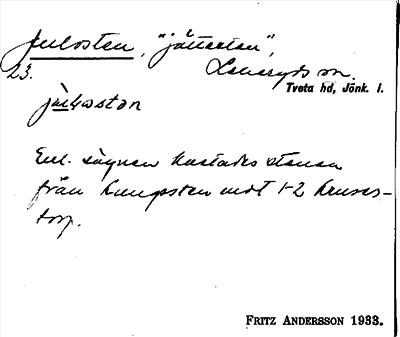 Julosten, "jättesten",
23. Lekeryds sn.
Tveta hd, Jönk. l.
Enl. sägnen kastades stenen
från Kungsten mot 1-2 Kruses-
torp.
FRITZ ANDERSSON 1933.